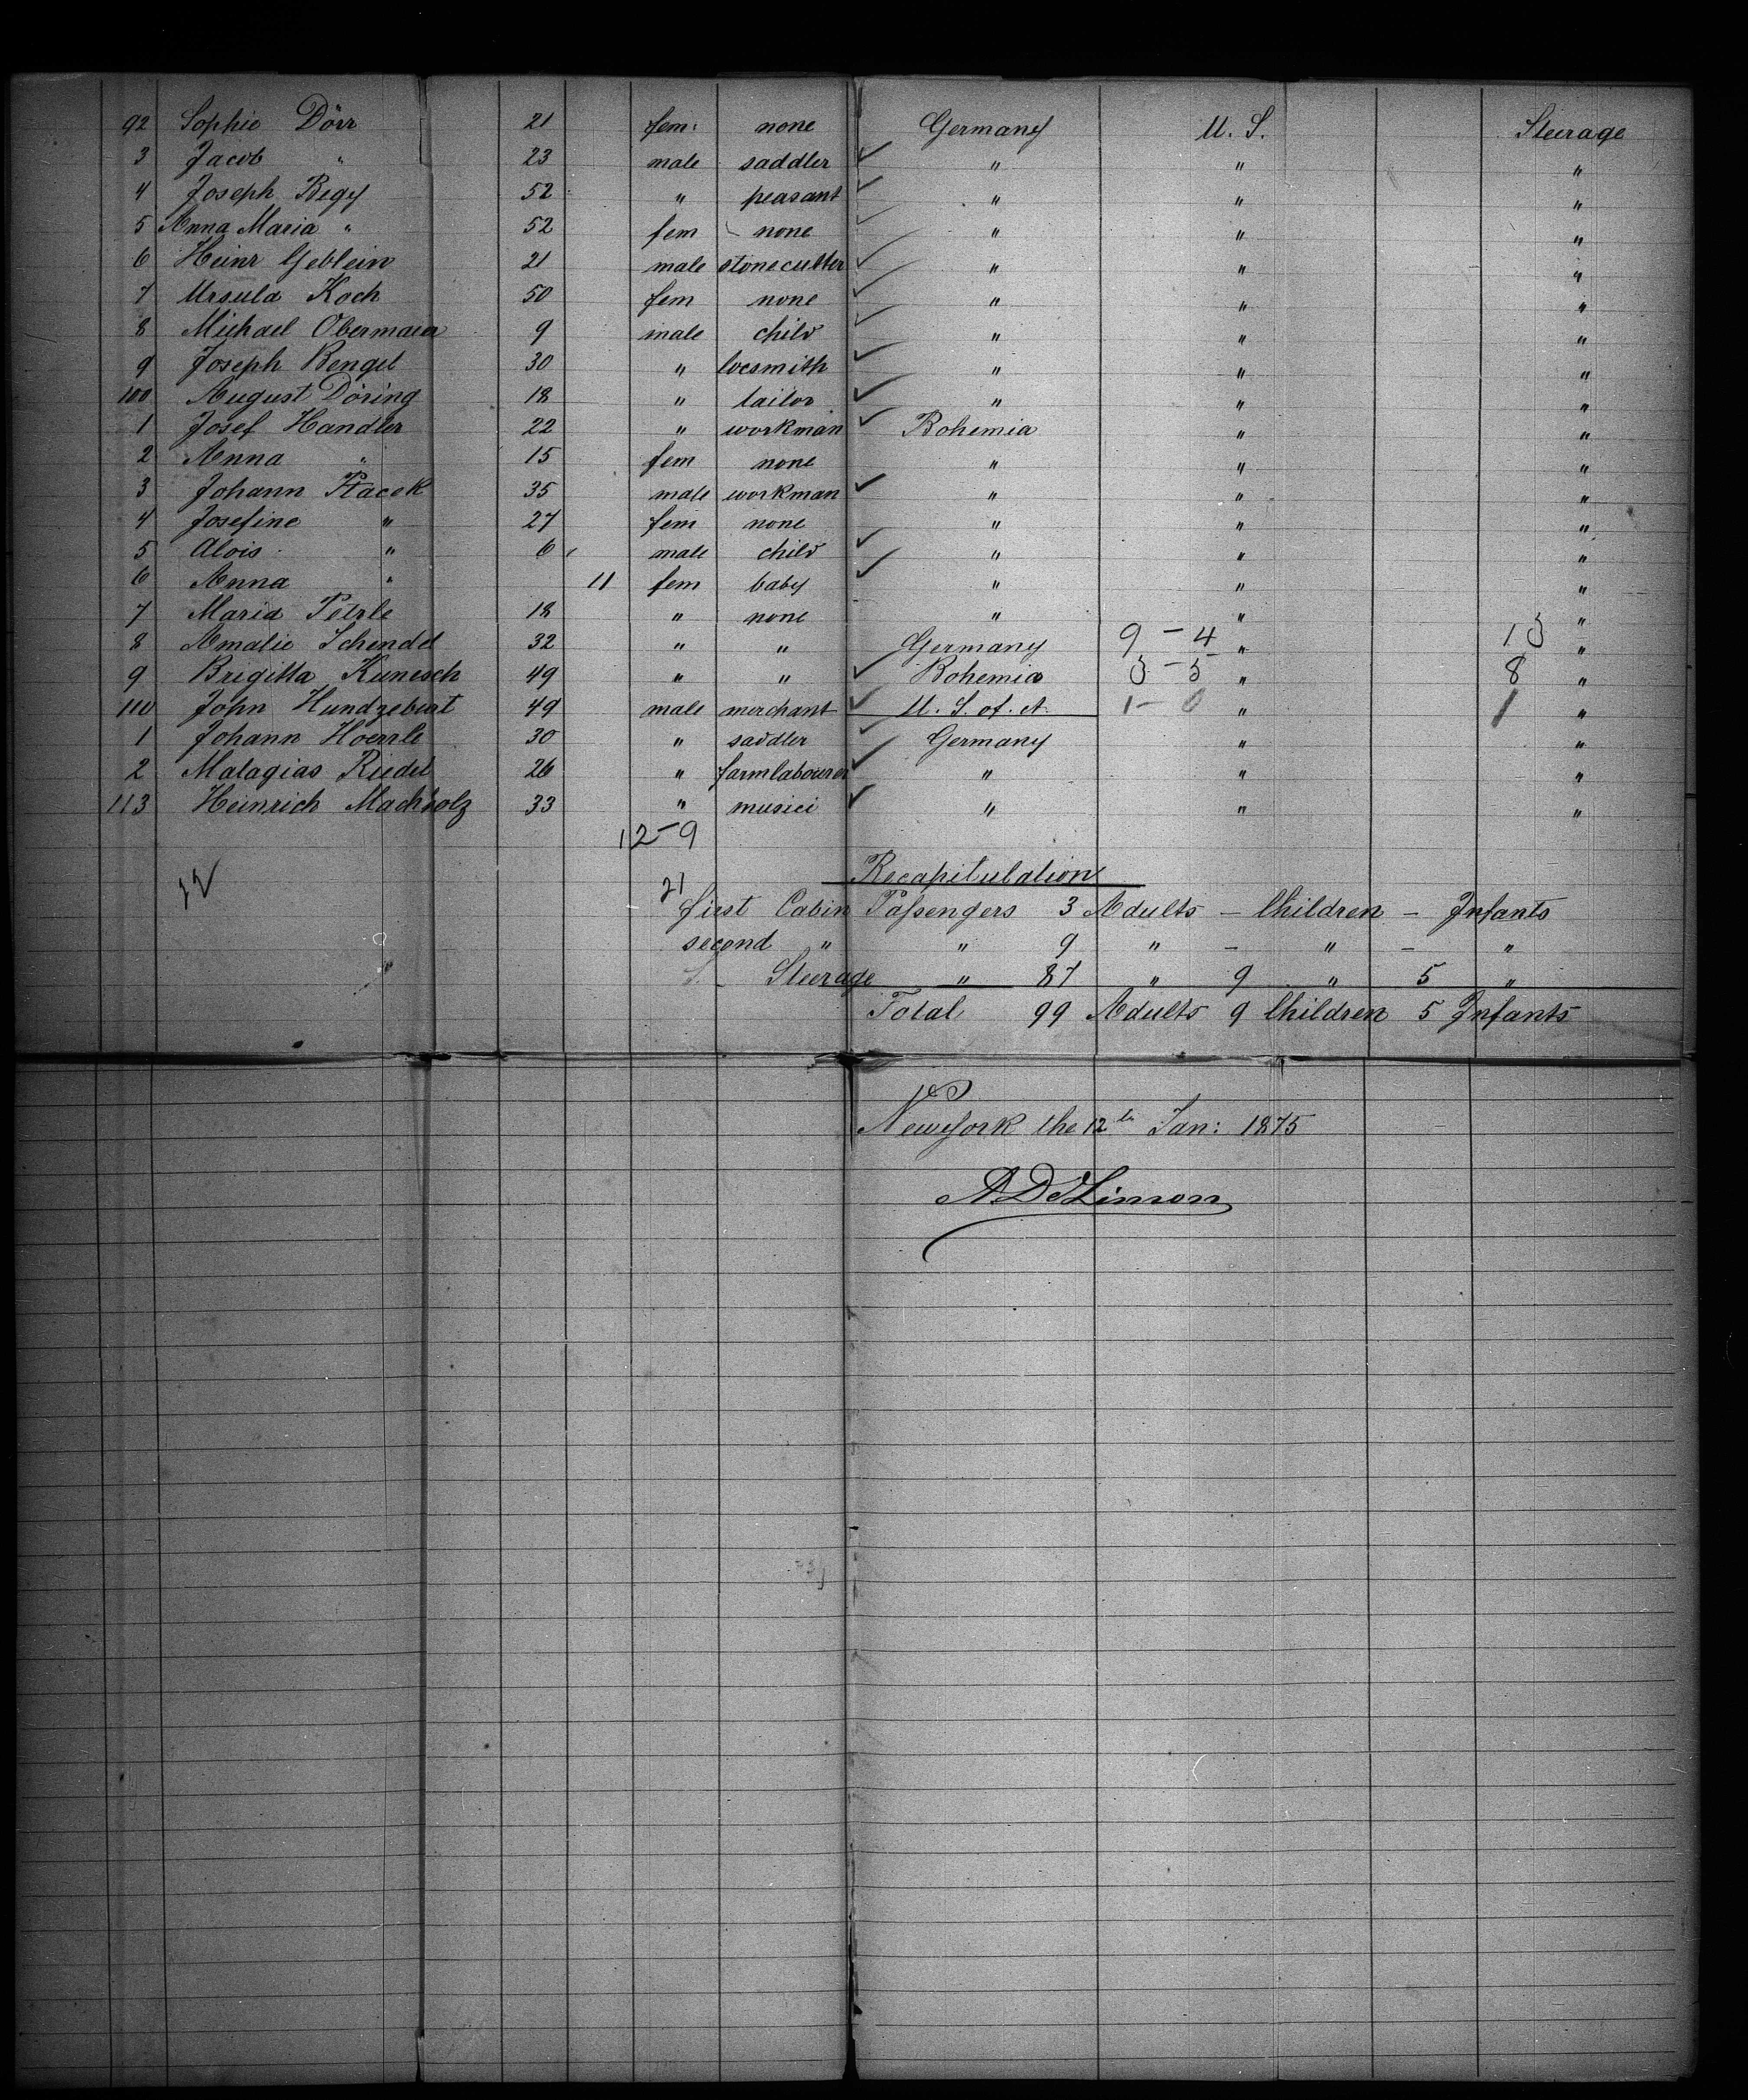 92 Sophie Dörr 21 fem: none Germany U. S. Steerage
3 Jacob " 23 male saddler " " "
4 Joseph Begy 52 " peasant " " "
5 Anna Maria " 52 fem none " " "
6 Heinr Geblein 21 male stonecutter " " "
7 Ursula Koch 50 fem none " " "
8 Michael Obermaier 9 male child " " "
9 Joseph Bengel 30 " locsmith " " "
100 August Döring 18 " tailor " " "
1 Josef Handler 22 " workman Bohemia " "
2 Anna " 15 fem none " " "
3 Johann Ptacek 35 male workman " " "
4 Josefine " 27 fem none " " "
5 Alois " 6 male child " " "
6 Anna " 11 fem baby " " "
7 Maria Petrle 18 " none " " "
8 Amalie Schendel 32 " " Germany 9 - 4 " 13 "
9 Brigitta Kunesch 49 " " Bohemia 3 - 5 " 8 "
110 John Hundzebut 49 male merchant U. S. of. A. 1 - 0 " 1 "
1 Johann Hoerrle 30 " saddler Germany " "
2 Malagias Riedel 26 " farmlabourer " " "
113 Heinrich Machholz 33 " musici " " "
12-9
21
Recapitulation
first Cabin Passengers 3 Adults - Children - Infants
second " " 9 " - " - "
Steerage " 87 " 9 " 5 "
Total 99 Adults 9 Children 5 Infants
Newyork the 12th Jan: 1875